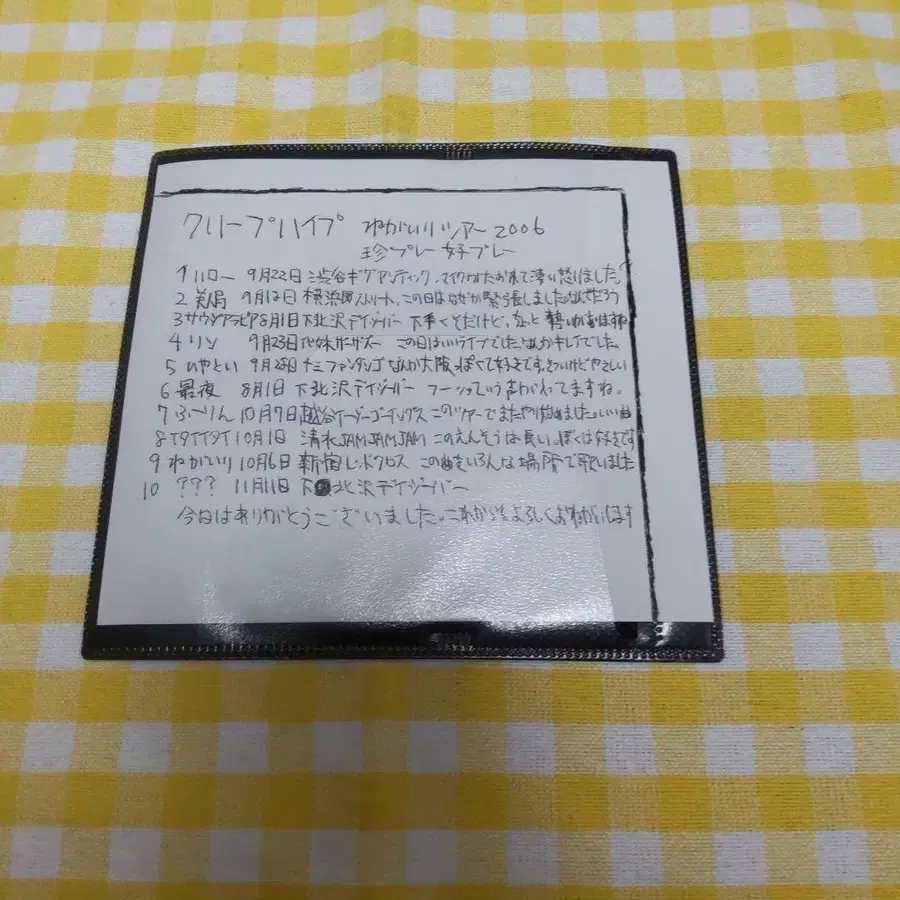 クリープハイプ ねがいりツアー2006
珍プレー好プレー
1 ハロー 9月22日 渋谷ギグアンティック、マイクがたおれて凄い怒りました。
2 美人局 9月12日 横浜 ストリート、この日はなぜか緊張しました。なんでだろう
3 サウジアラビア 8月1日 下北沢デイジーバー 下手くそだけど、なんと勢いがありますね
4 リン 9月23日 この日はいいライブでした。なんかキレイでした。
5 ひやとい 9月28日 十三ファンダンゴ なんか大阪っぽくて好きです。きついけどやさしい
6 最夜 8月1日 下北沢デイジーバー フーっっていう声がわってますね。
7 ふーりん 10月7日 越谷イージーゴーイングス このツアーでまたやり始めました。いい曲
8 イタイイタイ 10月1日 清水JAMJAMJAM このえんそうは長い。ぼくは好きです
9 ねがいり 10月6日 新宿レッドクロス この曲をいろんな場所で歌いました
10 ??? 11月11日 下北沢デイジーバー
今日はありがとうございました。これからもよろしくおねがいします